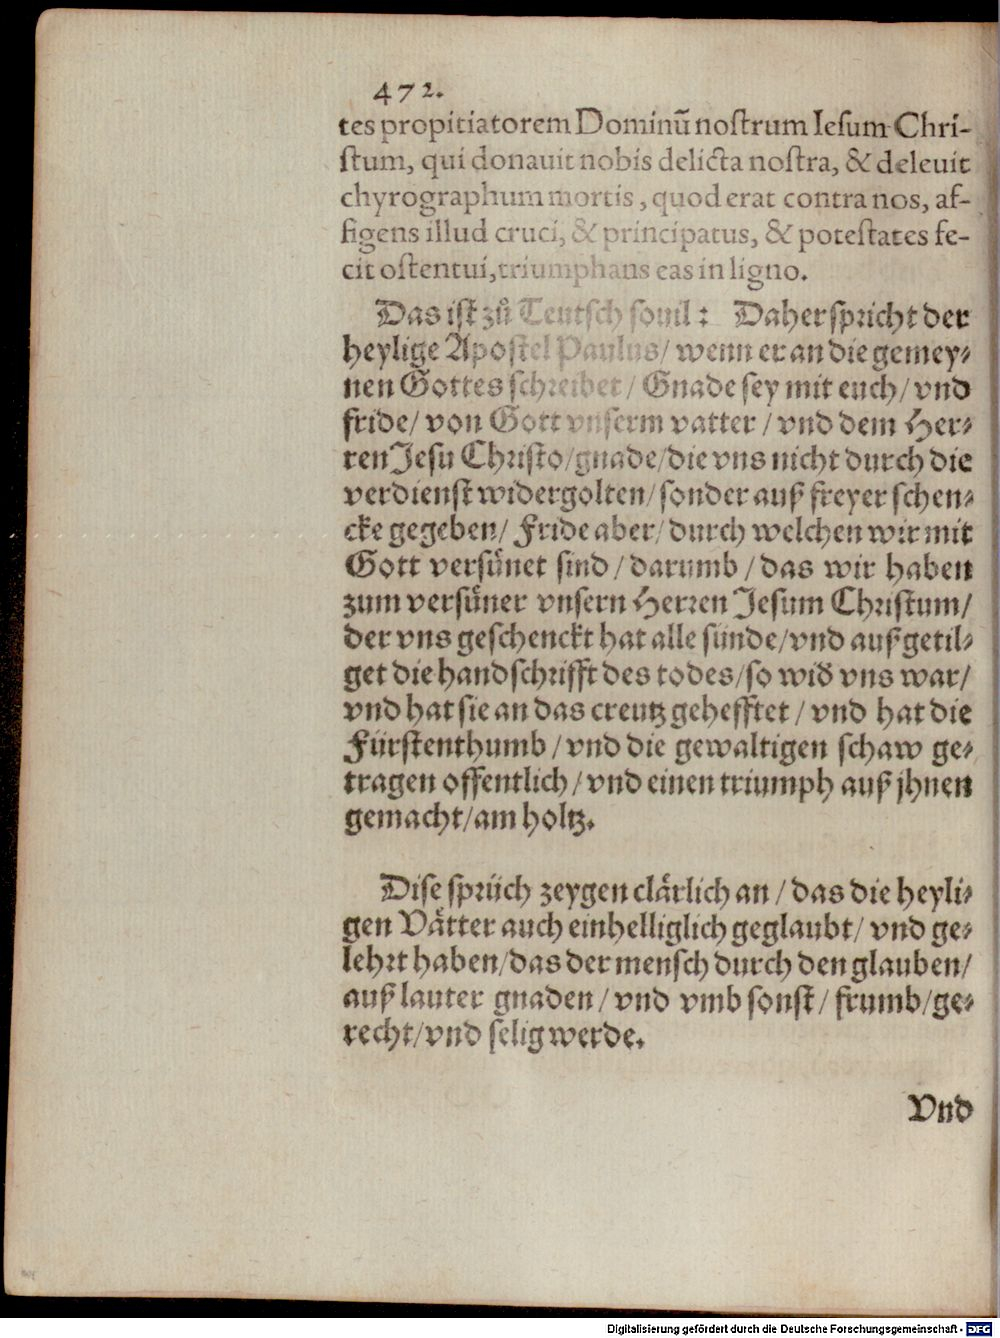 472.
tes propitiatorem Dominũ nostrum Iesum Chri-
stum, qui donauit nobis delicta nostra, & deleuit
chyrographum mortis, quod erat contra nos, af-
figens illud cruci, & principatus, & potestates fe-
cit ostentui, triumphans eas in ligno.
Das ist zů Teutsch souil: Daher spricht der
heylige Apostel Paulus/ wenn er an die gemey-
nen Gottes schreibet/ Gnade sey mit euch/ vnd
fride/ von Gott vnserm vatter/ vnd dem Her-
ren Jesu Christo/ gnade/ die vns nicht durch die
verdienst widergolten/ sonder auß freyer schen-
cke gegeben/ Fride aber/ durch welchen wir mit
Gott versünet sind/ darumb/ das wir haben
zum versüner vnsern Herren Jesum Christum/
der vns geschenckt hat alle sünde/ vnd außgetil-
get die handschrifft des todes/ so wid̕ vns war/
vnd hat sie an das creutz gehefftet/ vnd hat die
Fürstenthumb/ vnd die gewaltigen schaw ge-
tragen offentlich/ vnd einen triumph auß jhnen
gemacht/ am holtz.
Dise sprüch zeygen clärlich an/ das die heyli-
gen Vätter auch einhelliglich geglaubt/ vnd ge-
lehrt haben/ das der mensch durch den glauben/
auß lauter gnaden/ vnd vmb sonst/ frumb/ ge-
recht/ vnd selig werde.
Vnd
Digitalisierung gefördert durch die Deutsche Forschungsgemeinschaft - DFG